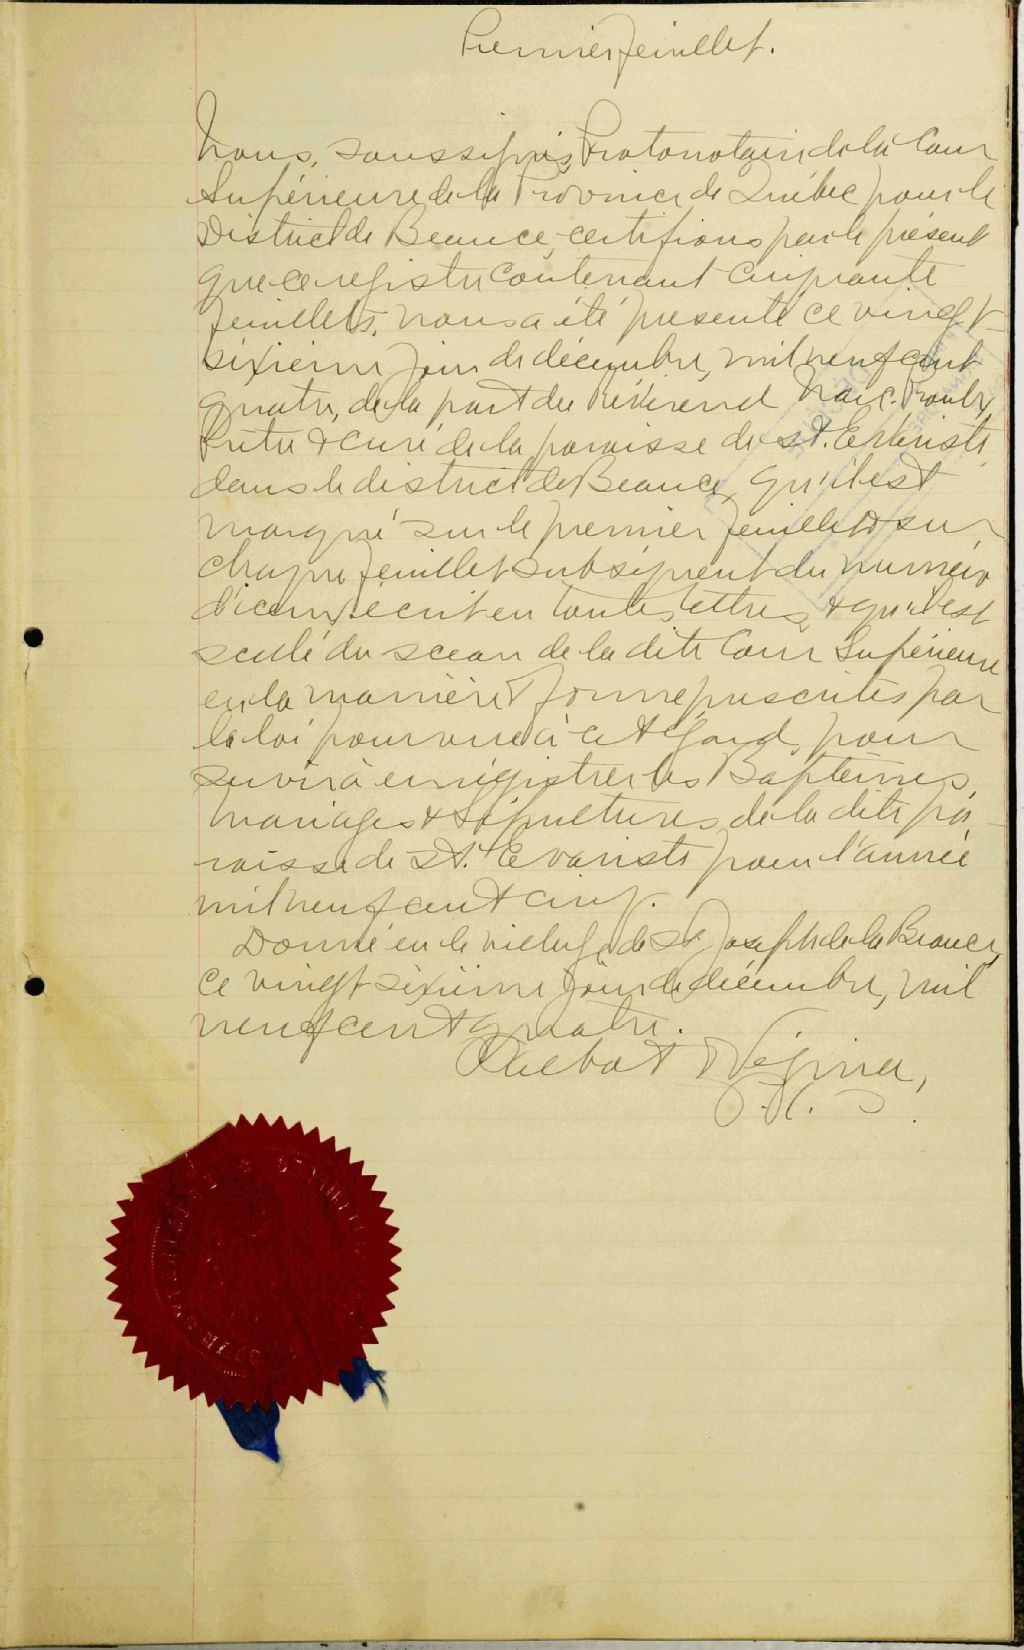 Premier feuillet.
Nous, soussigné, Protonotaire de la Cour
Supérieure de la Province de Québec pour le
District de Beauce, certifions par le présent
que ce registre contenant cinquante
feuillets, nous a été présenté ce vingt-
sixième jour de décembre, mil neuf cent
quatre, de la part du Révérend Proulx,
Prêtre & curé de la paroisse de St. Evariste
dans le district de Beauce, qu'il est
marqué sur le premier feuillet & sur
chaque feuillet subséquent du numéro
d'icelui, écrit en toutes lettres, & qu'il est
scellé du sceau de la dite Cour Supérieure
en la manière & forme prescrites par
la loi pourvue à cet égard, pour
servir à enrégistrer les Baptêmes,
Mariages & Sépultures de la dite pa-
roisse de St. Evariste pour l'année
mil neuf cent cinq.
Donné en le village de St Joseph de la Beauce,
ce vingt sixième jour de décembre, mil
neuf cent quatre.
Talbot & Vézina,